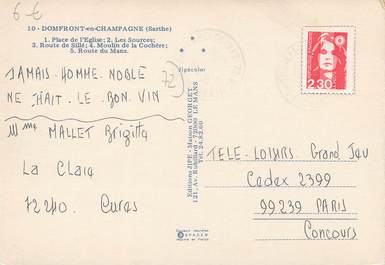 6 €
10 - DOMFRONT-en-CHAMPAGNE (Sarthe)
1. Place de l'Eglise; 2. Les Sources;
3. Route de Sillé; 4. Moulin de la Cochère;
5. Route du Mans.
JAMAIS. HOMME. NOBLE
NE HAIT. LE. BON. VIN
72
MALLET Brigitte
La Claie
72240. Cures
Editions JIPE - Maison GEORGET
121, Av. 72000 LE MANS
Tél. 24.82.60
2,30
TELE-LOISIRS Grand Jeu
Cedex 2399
99239 PARIS
Concours